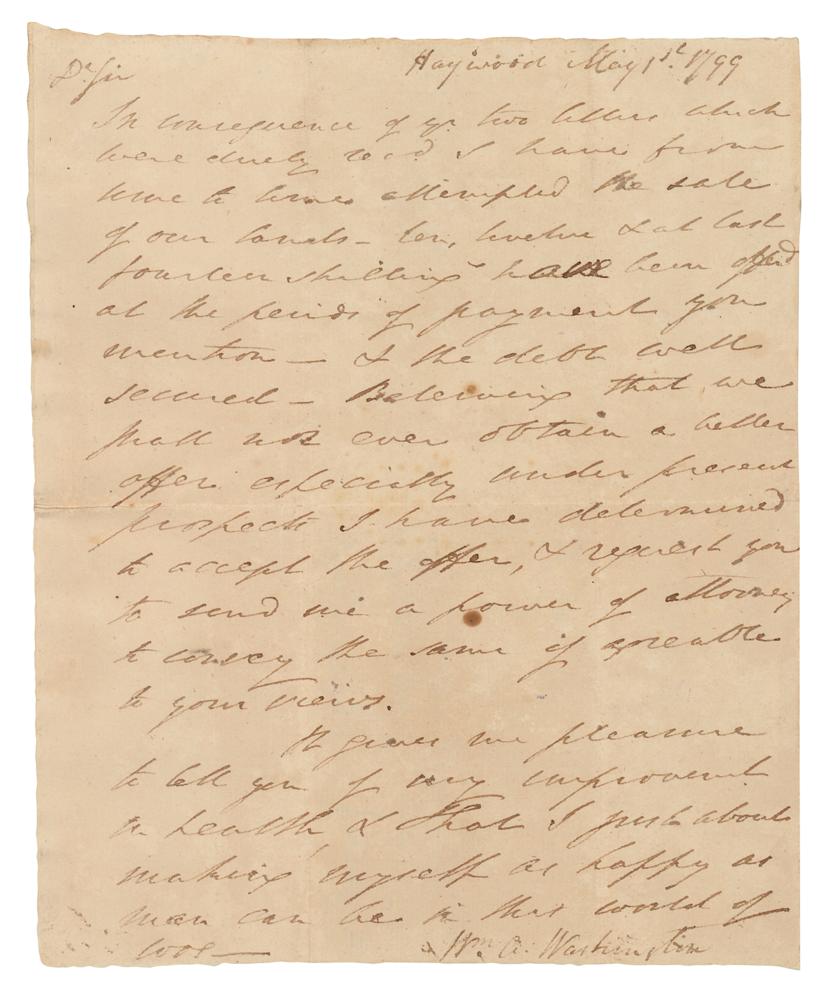 Haywood May 1st. 1799
Dr Sir
In consequence of yr two letters which
were duely recd I have from
time to time attempted the sale
of our lands - ten, twelve & at last
fourteen shillings have been offerd
at the periods of payment you
mention - & the debt well
secured - Beleiving that we
shall not ever obtain a better
offer especially under present
prospects I have determined
to accept the offer, & request you
to send me a power of attorney
to convey the same if agreeable
to your views.
It gives me pleasure
to tell you of my improvement
in health, & that I just about
making myself as happy as
man can be in this world of
woe -
Wm. A. Washington